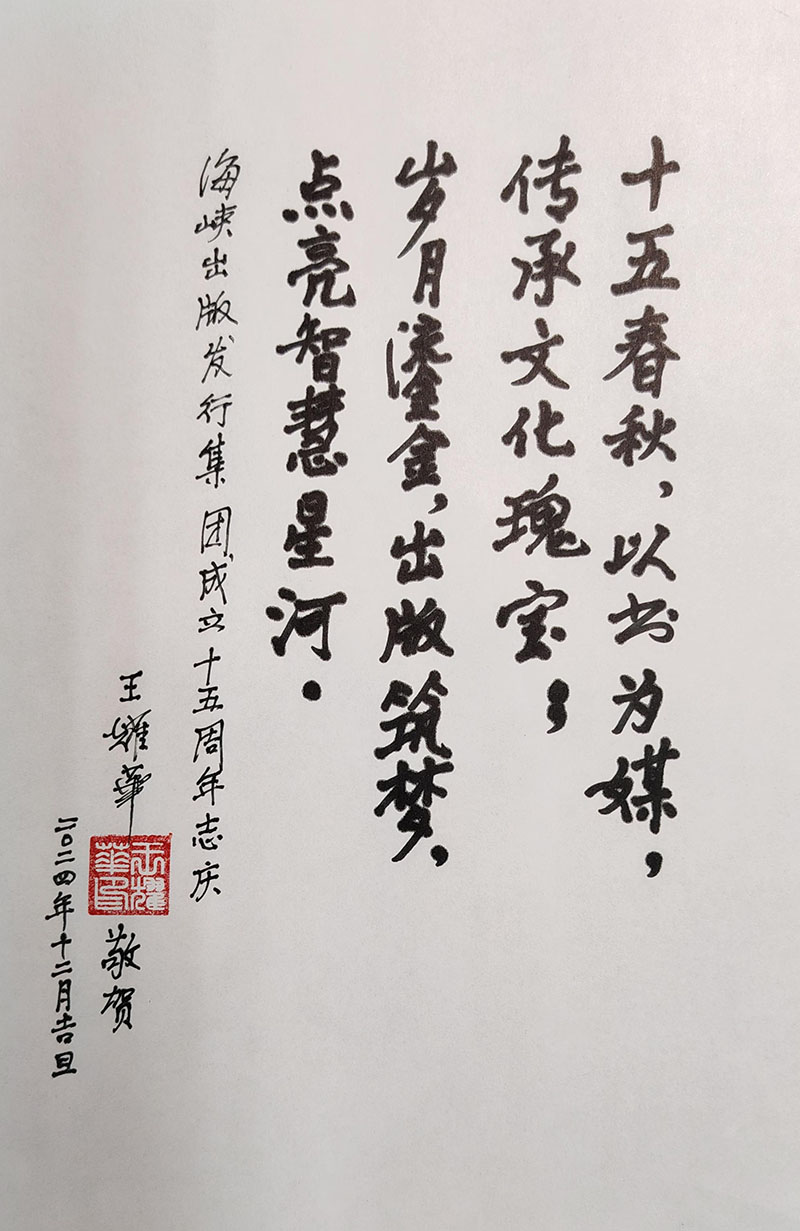 十五春秋，以书为媒，
传承文化瑰宝；
岁月鎏金，出版筑梦，
点亮智慧星河。
海峡出版发行集团成立十五周年志庆
王耀華 敬贺
王耀華印
二〇二四年十二月吉旦